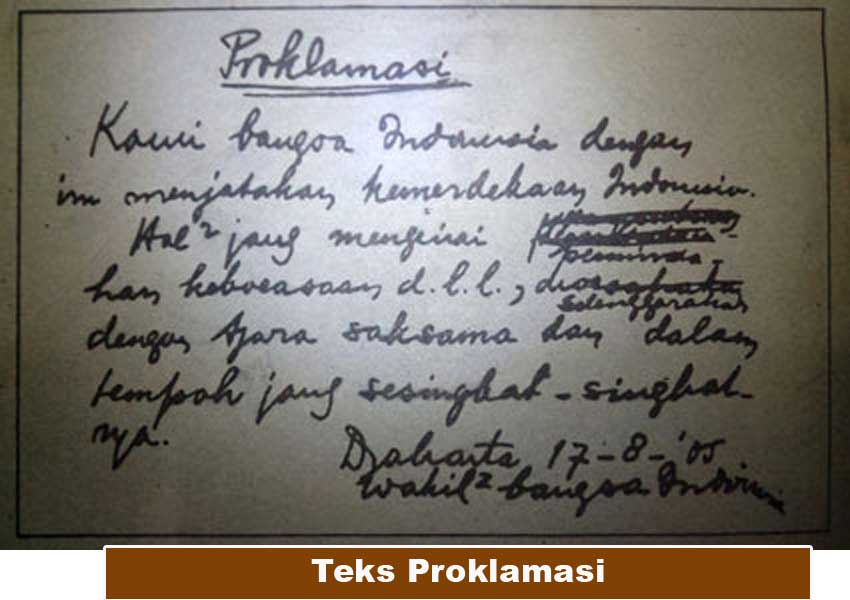 Proklamasi
Kami bangsa Indonesia dengan
ini menjatakan kemerdekaan Indonesia.
Hal² jang mengenai
peminda-
han kekoeasaan d.l.l.,
diselenggarakan
dengan tjara saksama dan dalam
tempoh jang sesingkat-singkat-
nja.
Djakarta 17-8-'05
Wakil² bangsa Indonesia
Teks Proklamasi